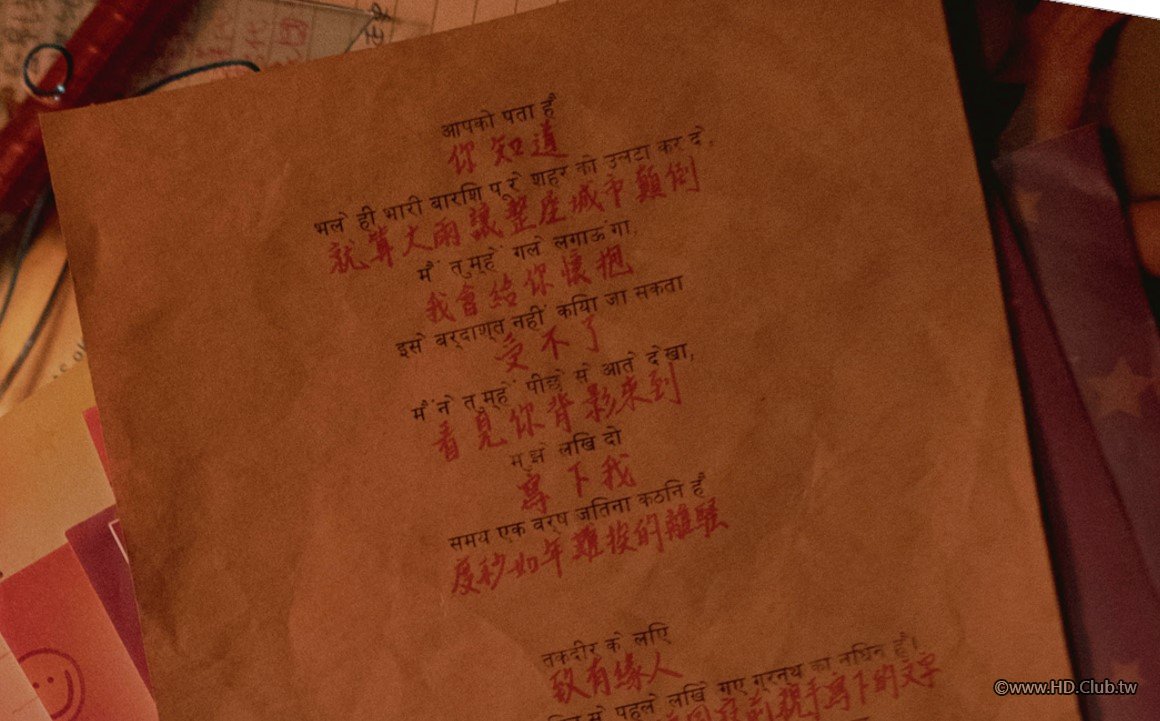 आपको पता है
你知道
भले ही भारी बारशि पूरे शहर को उलटा कर दे,
就算大雨讓整座城市顛倒
मैं तुम्हें गले लगाऊंगा,
我會給你懷抱
इसे बर्दाश्त नहीं कयिा जा सकता
受不了
मैंने तुम्हें पीछे से आते देखा,
看見你背影來到
मुझे लखि दो
寫下我
समय एक वर्ष जतिना कठनि है
度秒如年難捱的離騷
तकदीर के लएि
致有緣人
से पहले लखिे गए ग्रन्थ का
親手寫下的文字
©www.HD.Club.tw